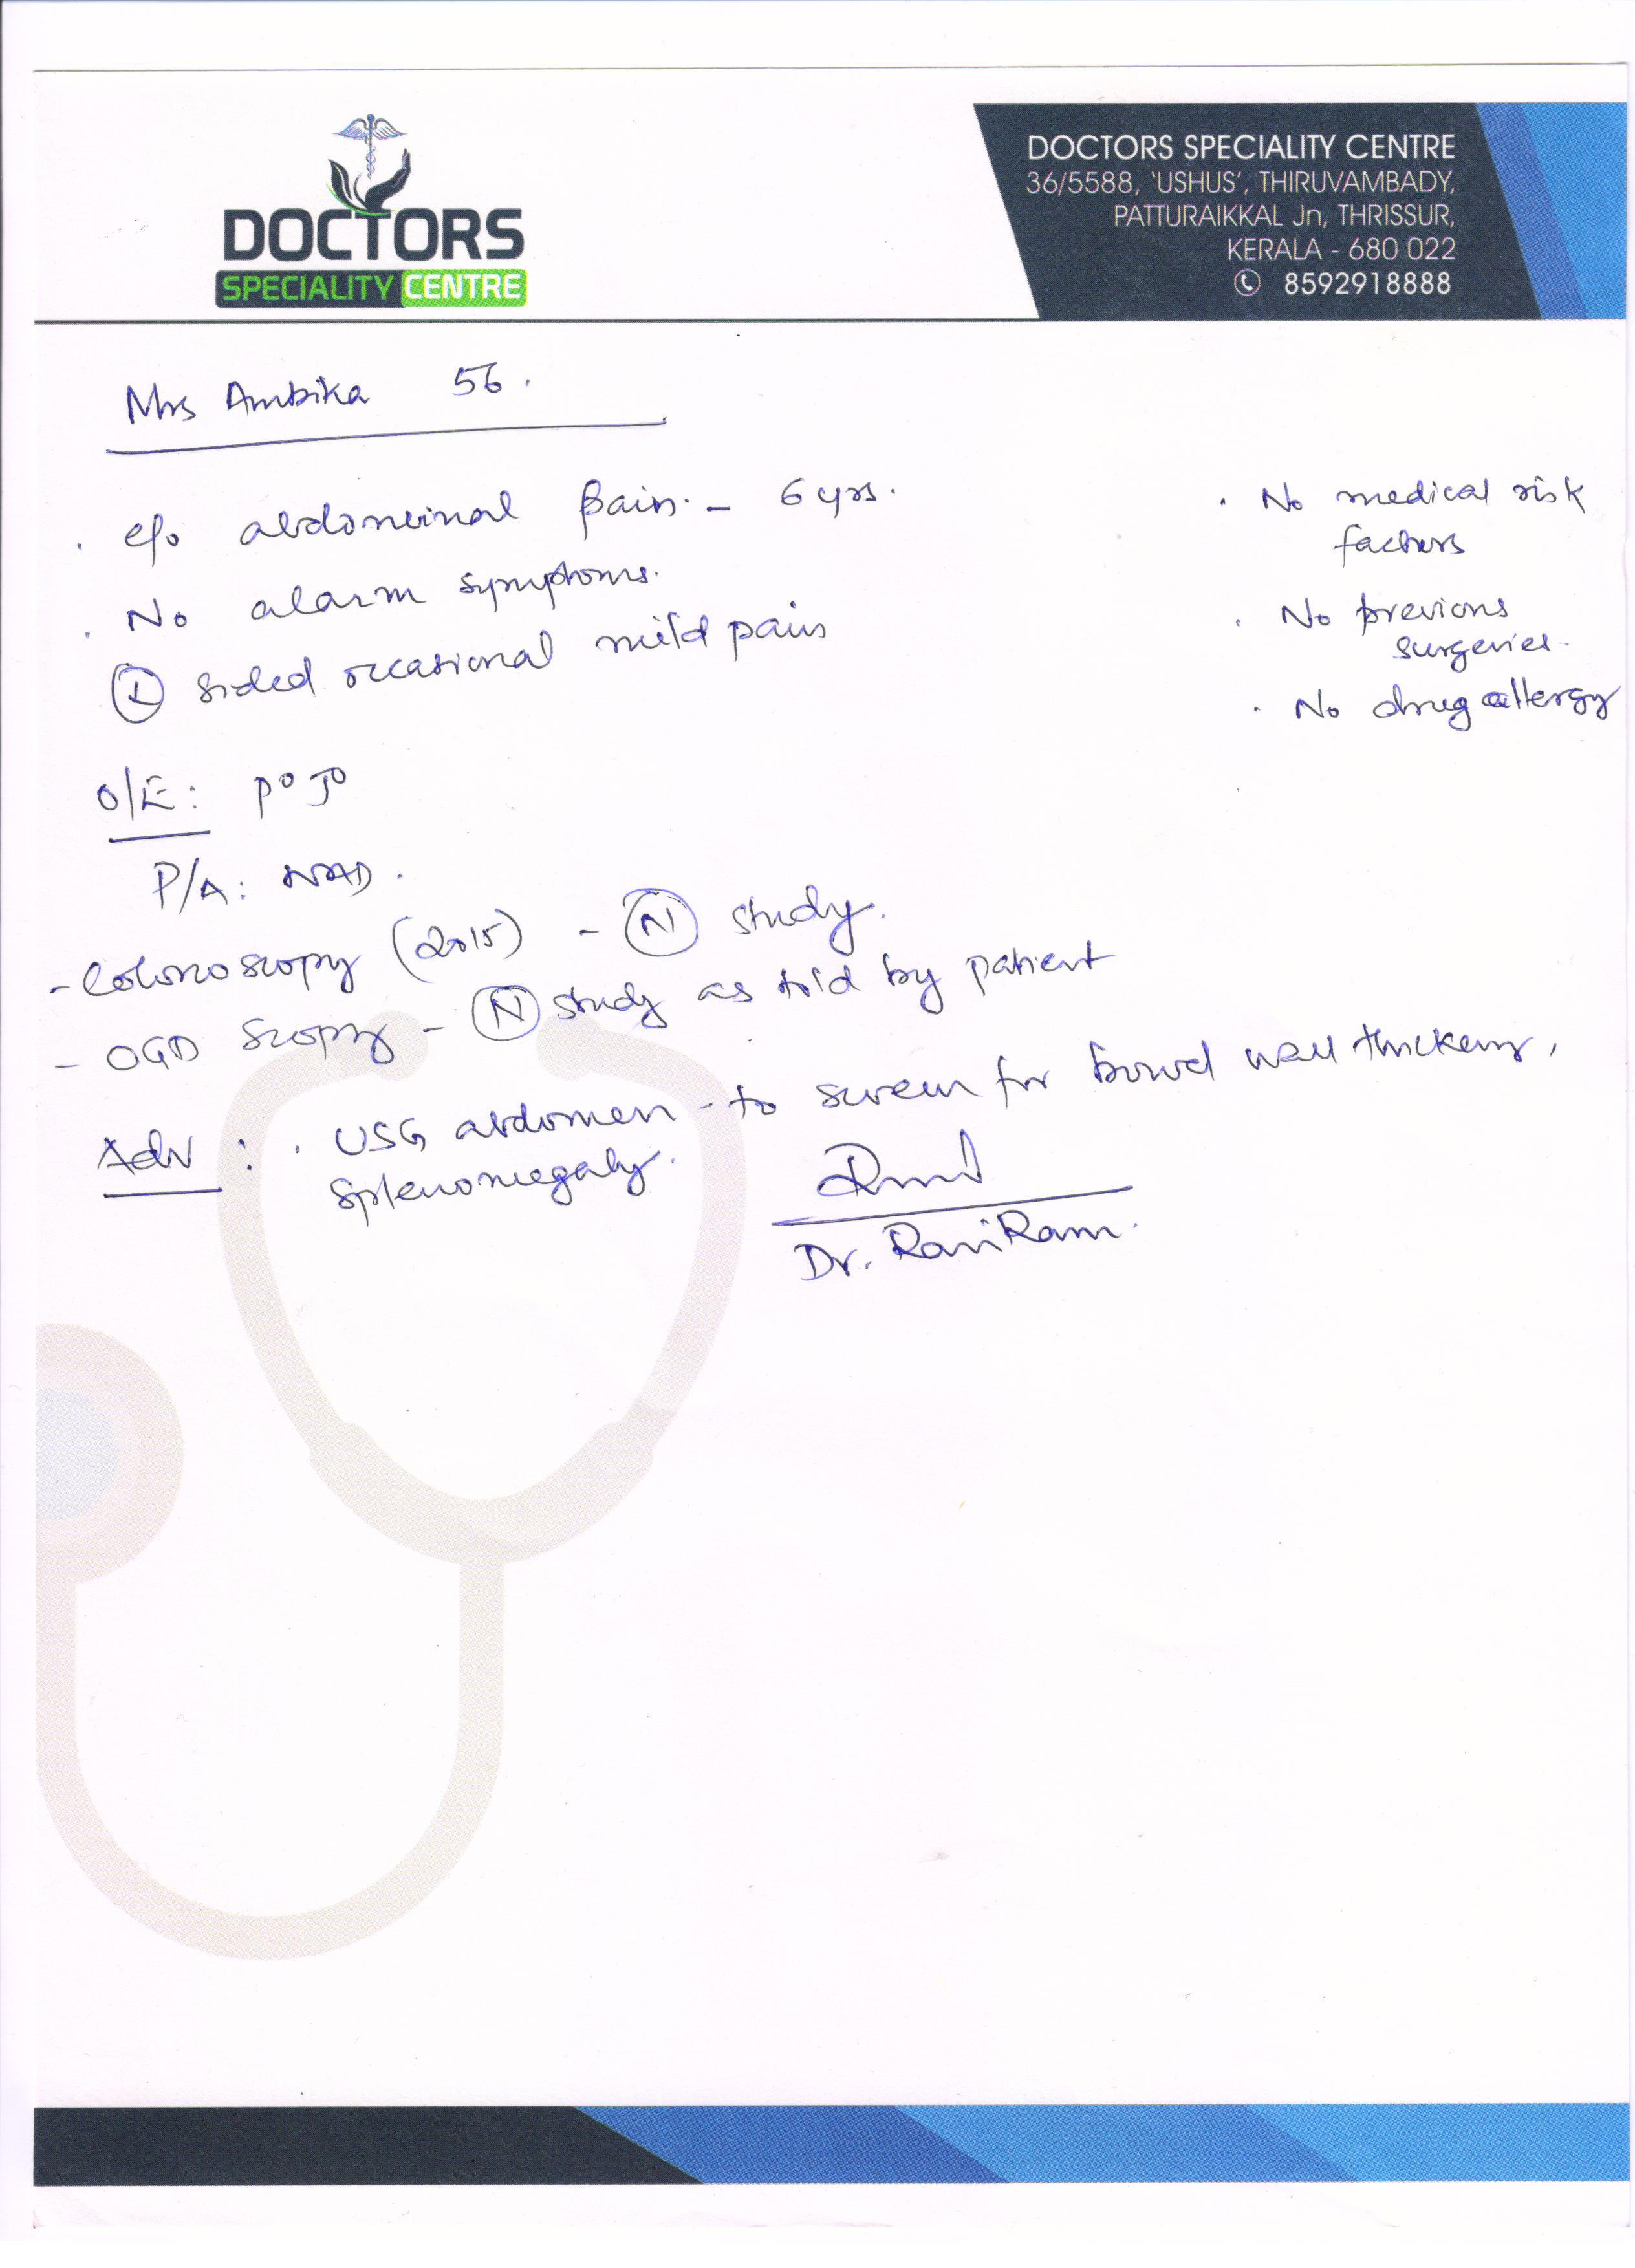 DOCTORS
SPECIALITY CENTRE
DOCTORS SPECIALITY CENTRE
36/5588, 'USHUS', THIRUVAMBADY,
PATTURAIKKAL Jn, THRISSUR,
KERALA - 680 022
8592918888
Mrs Ambika 56.
. c/o abdominal pain. - 6 yrs.
. No alarm symptoms.
(L) sided occasional mild pain
. No medical risk
factors
. No previous
surgeries.
. No drug allergy
O/E: P° J°
P/A: NAD.
- Colonoscopy (2015) - (N) study.
- OGD Scopy - (N) study as told by patient
Adv : . USG abdomen - to screen for bowel wall thickening,
Splenomegaly.
Dr. RaviRam.